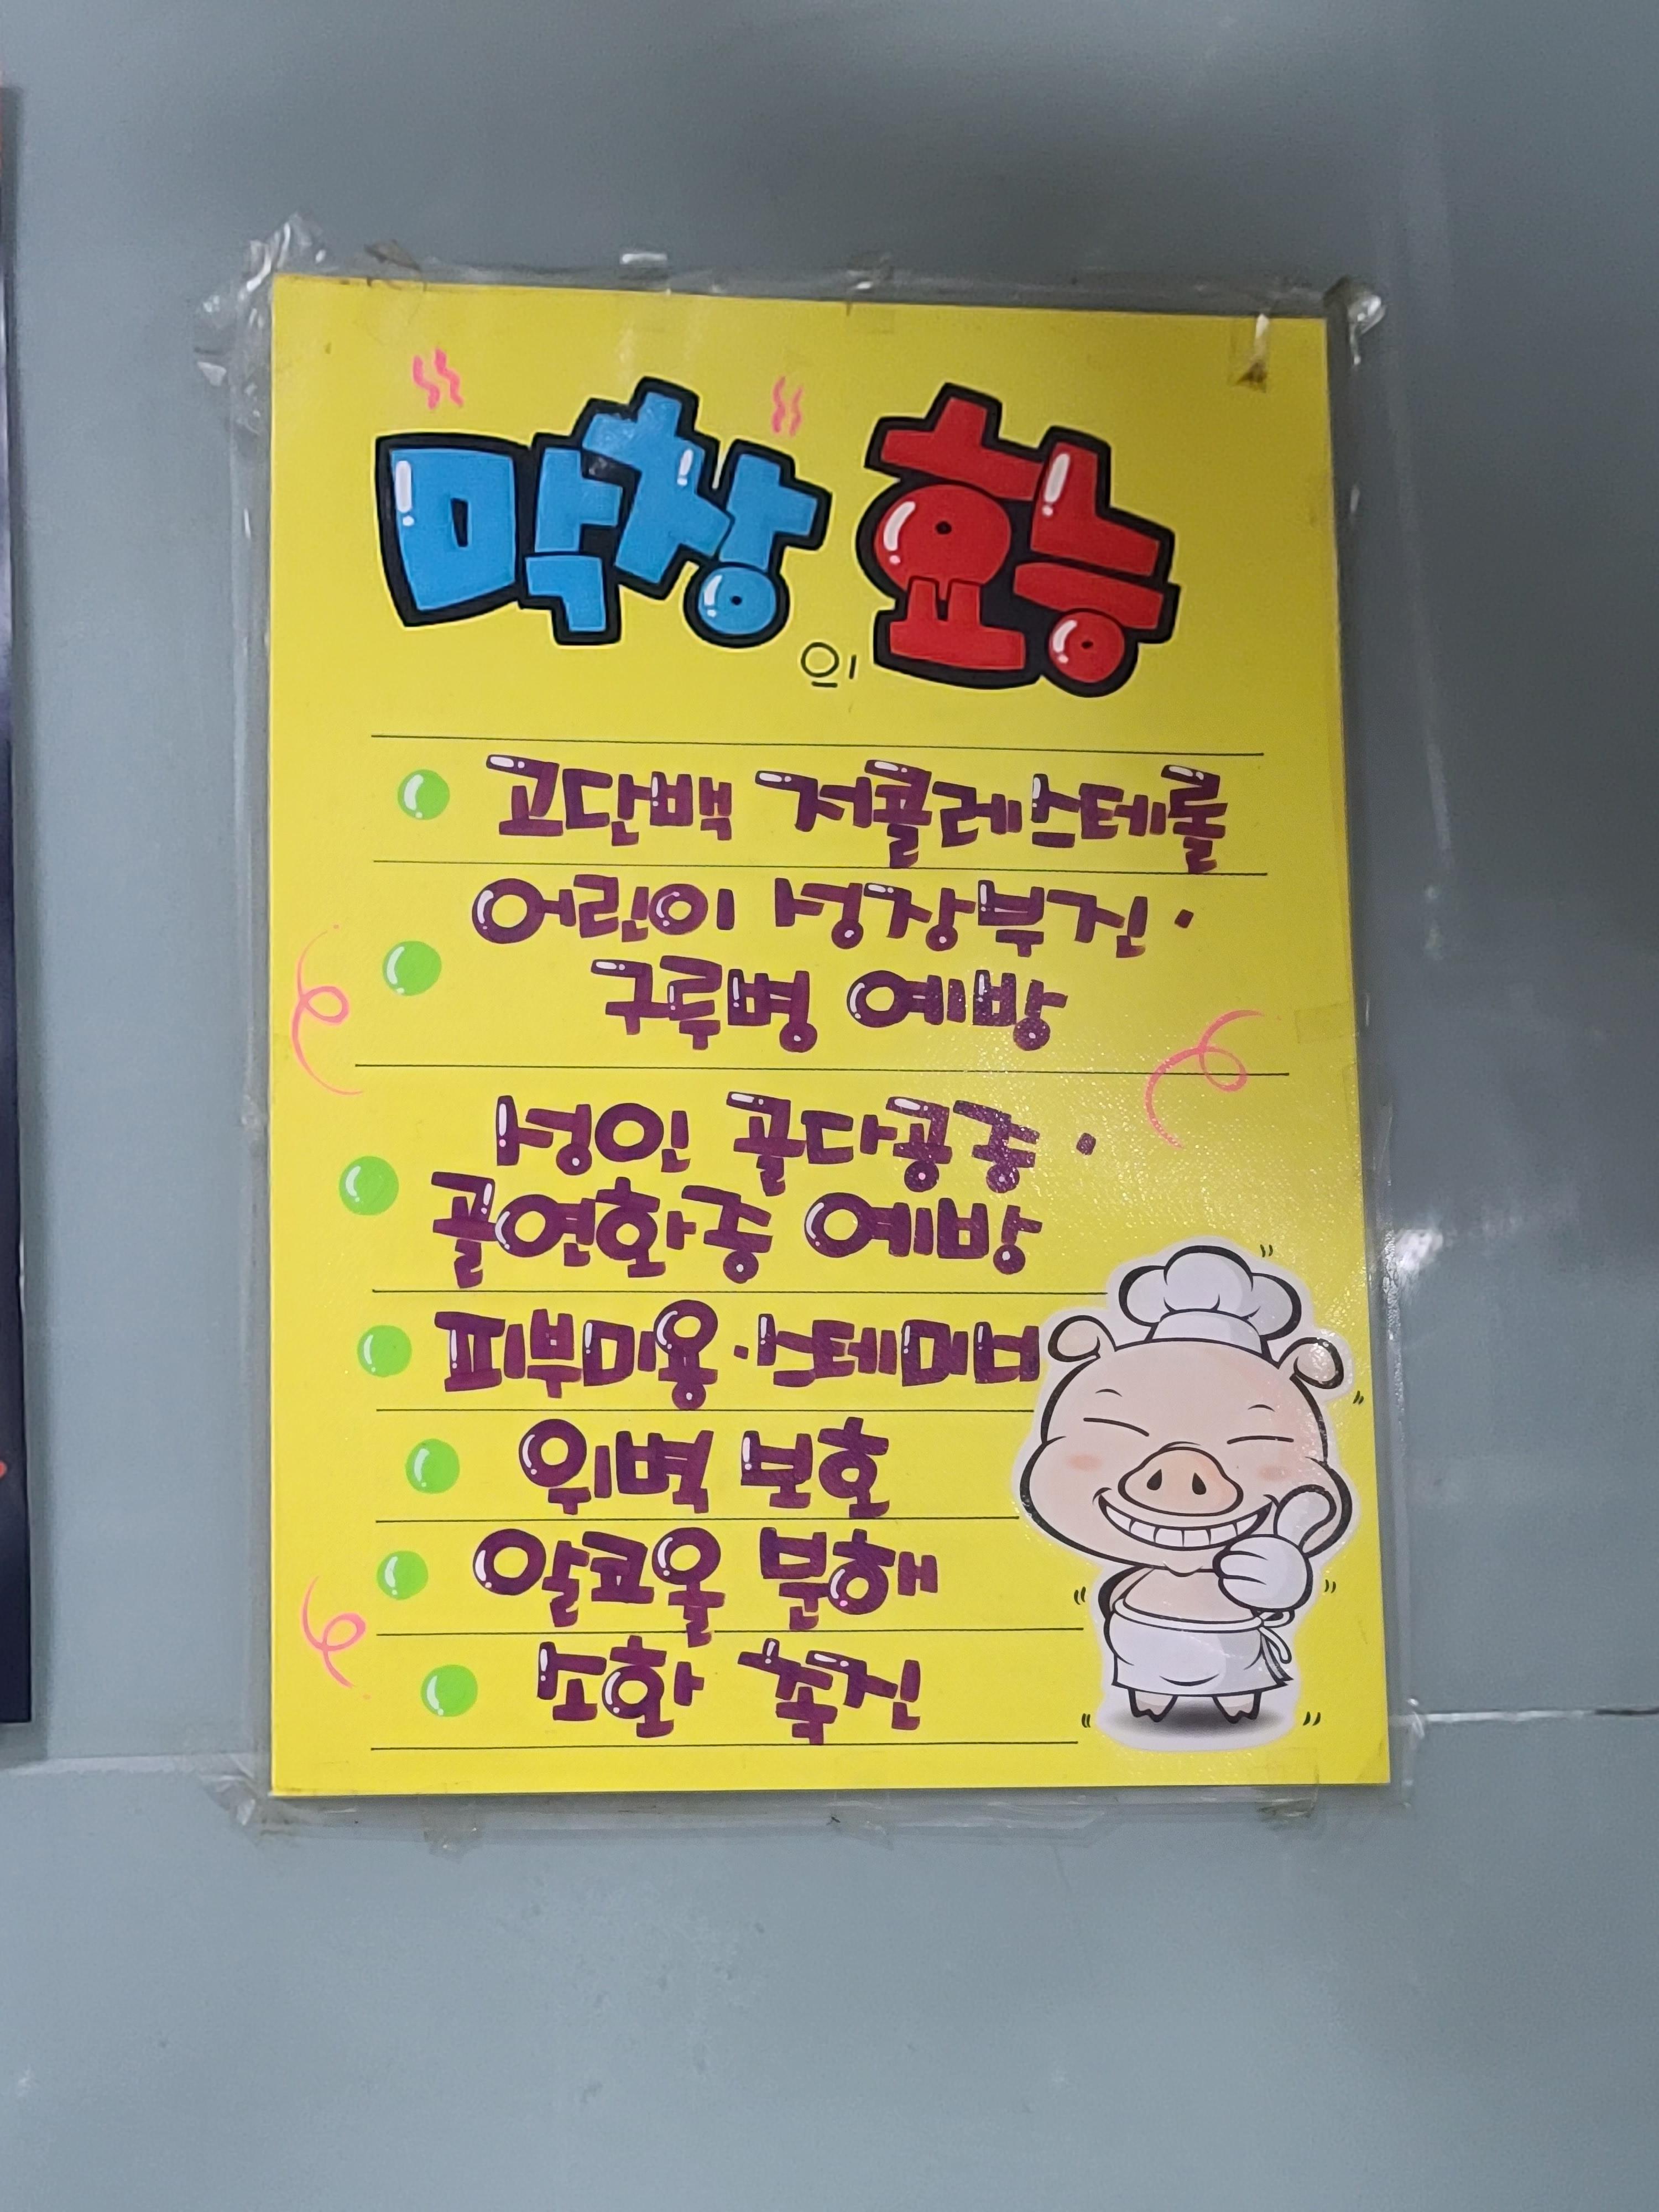 막창의 효능
고단백 저콜레스테롤
어린이 성장부진·
구루병 예방
성인 골다공증·
골연화증 예방
피부미용·스테미너
위벽 보호
알코올 분해
소화 촉진